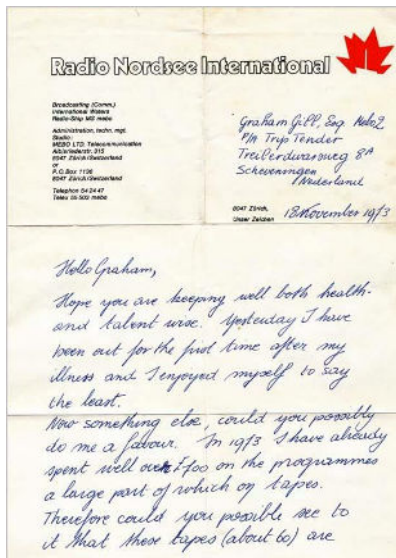 Radio Nordsee International
Broadcasting (Comm.)
International Waters
Radio-Ship MS mebo
Administration, techn. mgt.
Studio:
MEBO LTD. Telecommunication
Albisriederstr. 315
8047 Zürich/Switzerland
or
P.O. Box 1136
8047 Zürich/Switzerland
Telephon 54 24 47
Telex 55 503 mebo
Graham Gill, Esq. Mebo2
P/A Trip Tender
8A
Scheveningen
Nederland
8047 Zürich,
Unser Zeichen 18 November 1973
Hello Graham,
Hope you are keeping well both health-
and talent wise. Yesterday I have
been out for the first time after my
illness and I enjoyed myself to say
the least.
Now something else, could you possibly
do me a favour. In 1973 I have already
spent well over on the programmes
a large part of which on tapes.
Therefore could you possible see to
it that these tapes (about 60) are